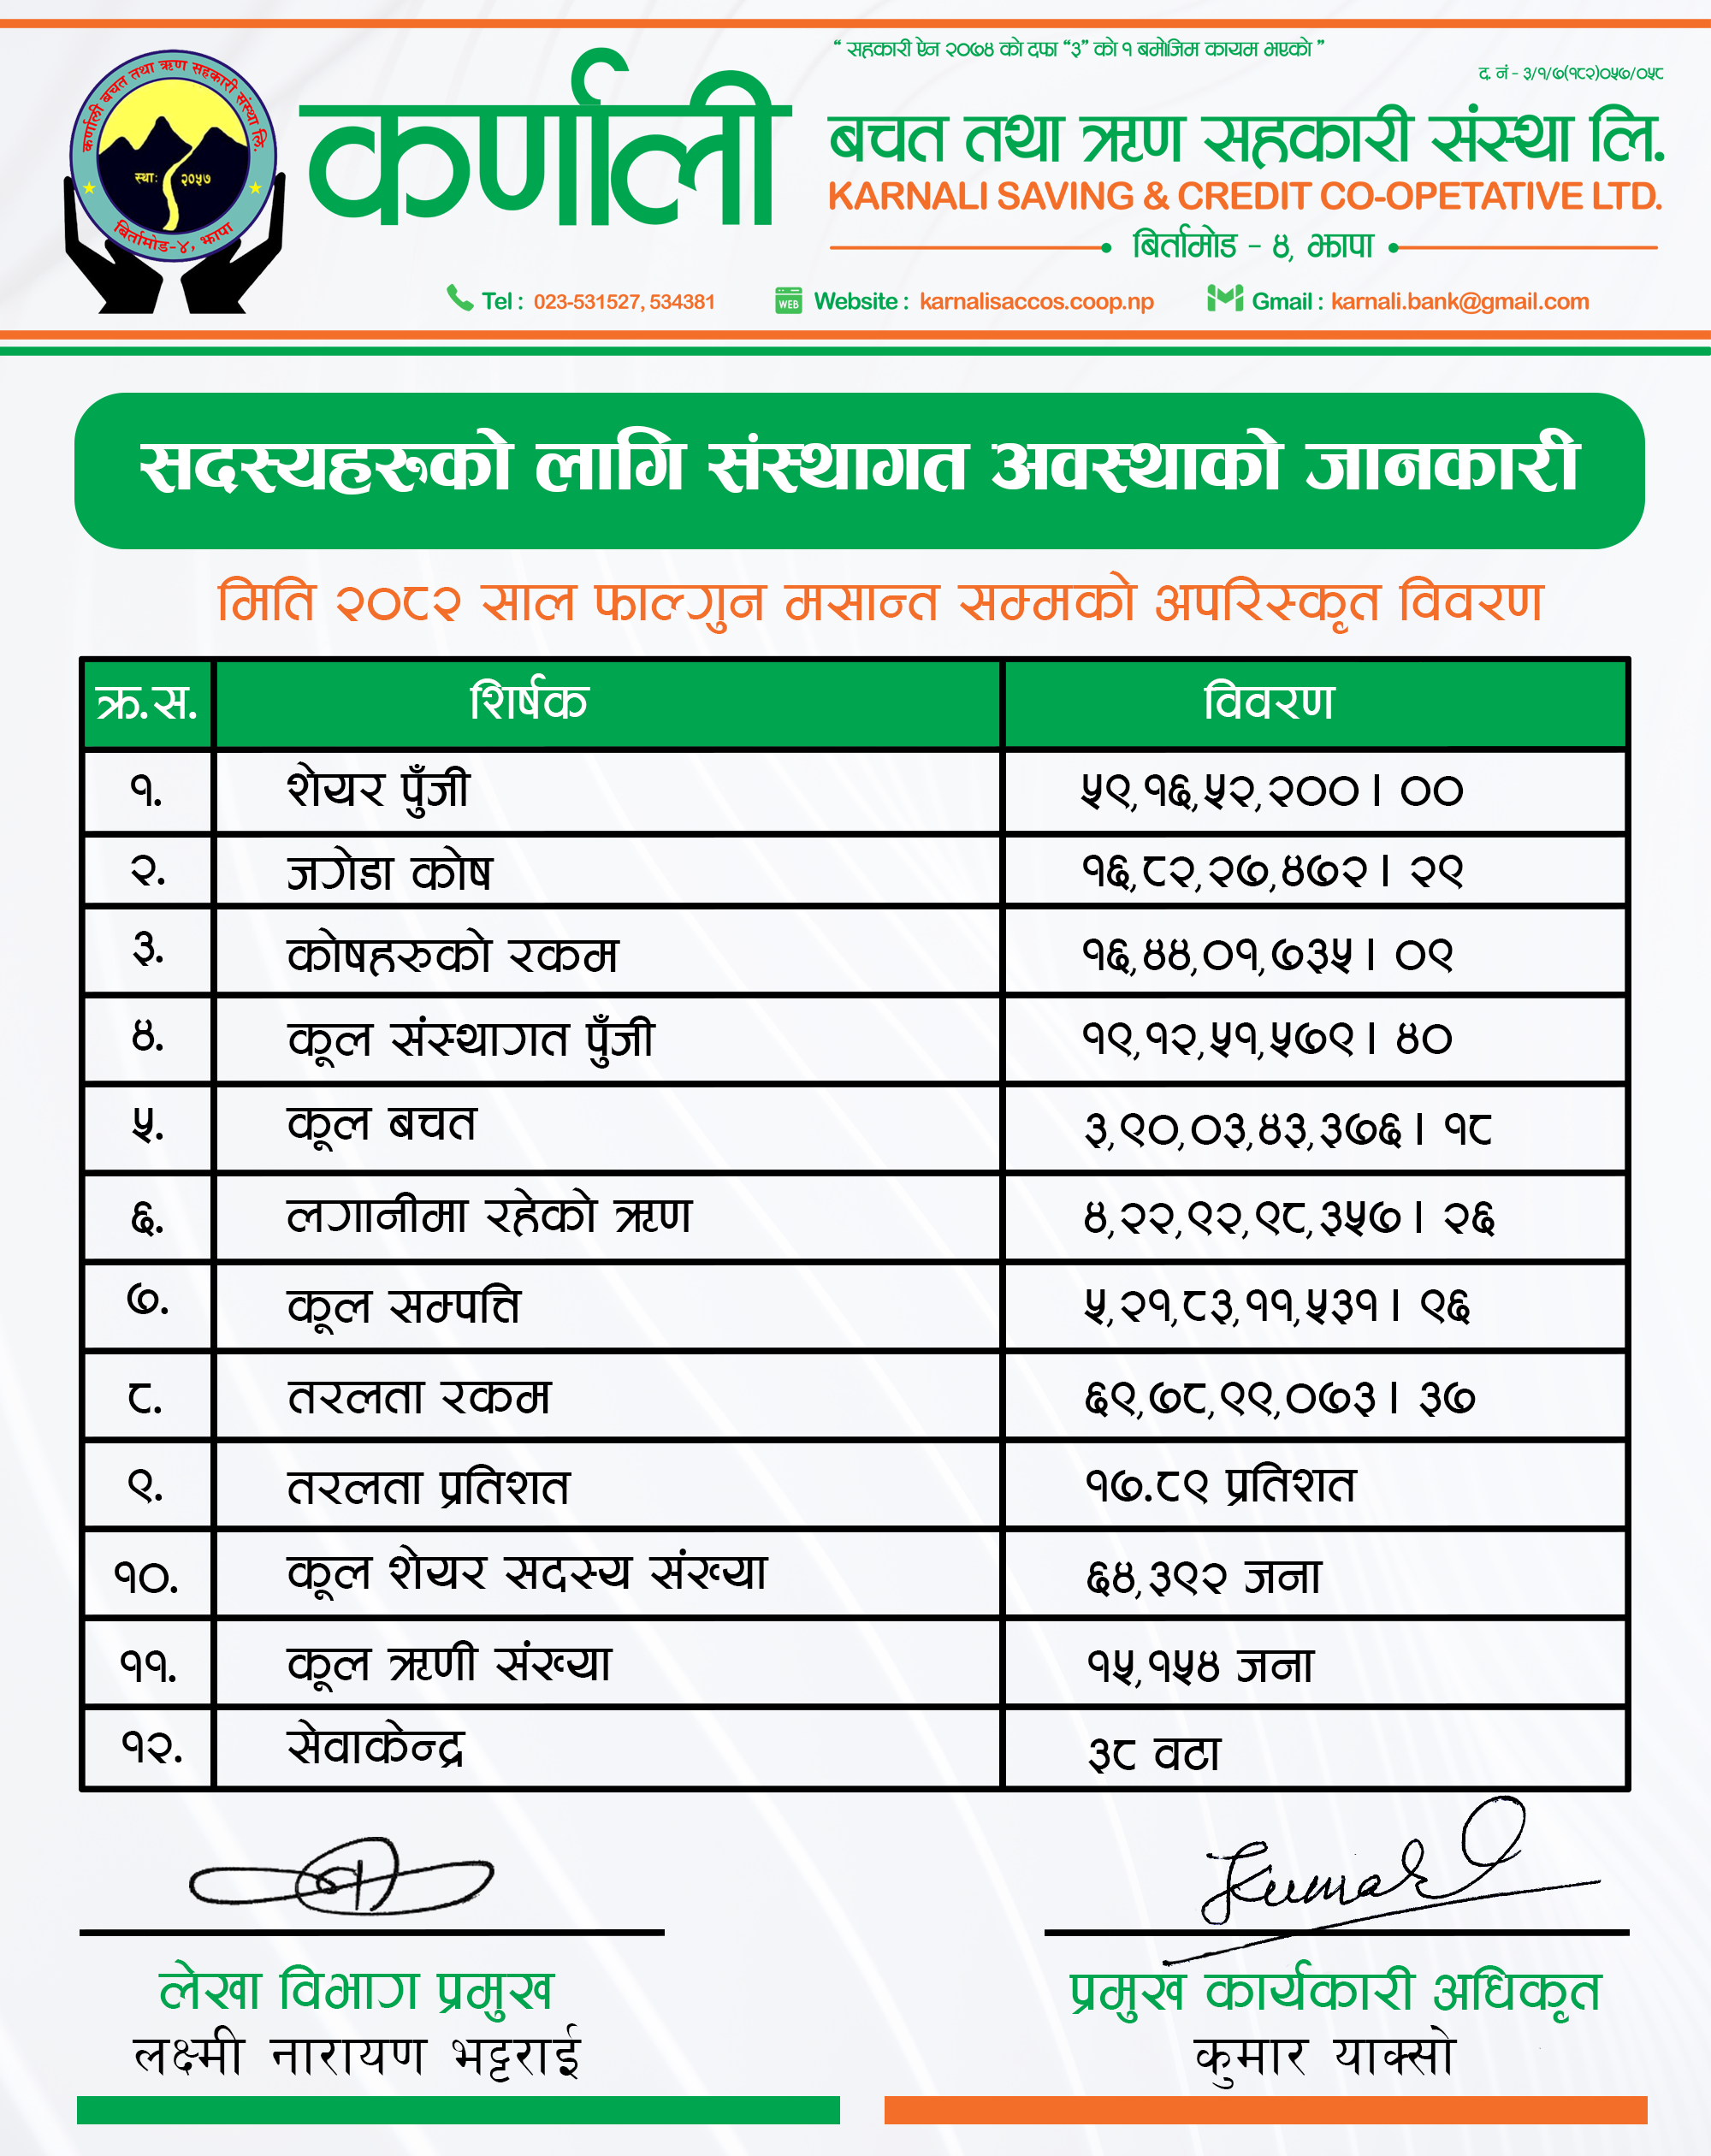 “ सहकारी ऐन २०७४ को दफा “३” को १ बमोजिम कायम भएको ”
द. नं - ३/१/७(१८२)०५७/०५८
कर्णाली बचत तथा ऋण सहकारी संस्था लि.
स्था: २०५७
बिर्तामोड-४, झापा
कर्णाली
बचत तथा ऋण सहकारी संस्था लि.
KARNALI SAVING & CREDIT CO-OPETATIVE LTD.
बिर्तामोड - ४, झापा
Tel : 023-531527, 534381 WEB Website : karnalisaccos.coop.np Gmail : karnali.bank@gmail.com
सदस्यहरुको लागि संस्थागत अवस्थाको जानकारी
मिति २०८२ साल फाल्गुन मसान्त सम्मको अपरिस्कृत विवरण
क्र.स. शिर्षक विवरण
१. शेयर पुँजी ५९,१६,५२,२००। ००
२. जगेडा कोष १६,८२,२७,४७२। २९
३. कोषहरुको रकम १६,४४,०१,७३५। ०९
४. कूल संस्थागत पुँजी १९,१२,५१,५७९। ४०
५. कूल बचत ३,९०,०३,४३,३७६। १८
६. लगानीमा रहेको ऋण ४,२२,९२,९८,३५७। २६
७. कूल सम्पत्ति ५,२१,८३,११,५३१। ९६
८. तरलता रकम ६९,७८,९९,०७३। ३७
९. तरलता प्रतिशत १७.८९ प्रतिशत
१०. कूल शेयर सदस्य संख्या ६४,३९२ जना
११. कूल ऋणी संख्या १५,१५४ जना
१२. सेवाकेन्द्र ३८ वटा
Kumar
लेखा विभाग प्रमुख
लक्ष्मी नारायण भट्टराई
प्रमुख कार्यकारी अधिकृत
कुमार याक्सो